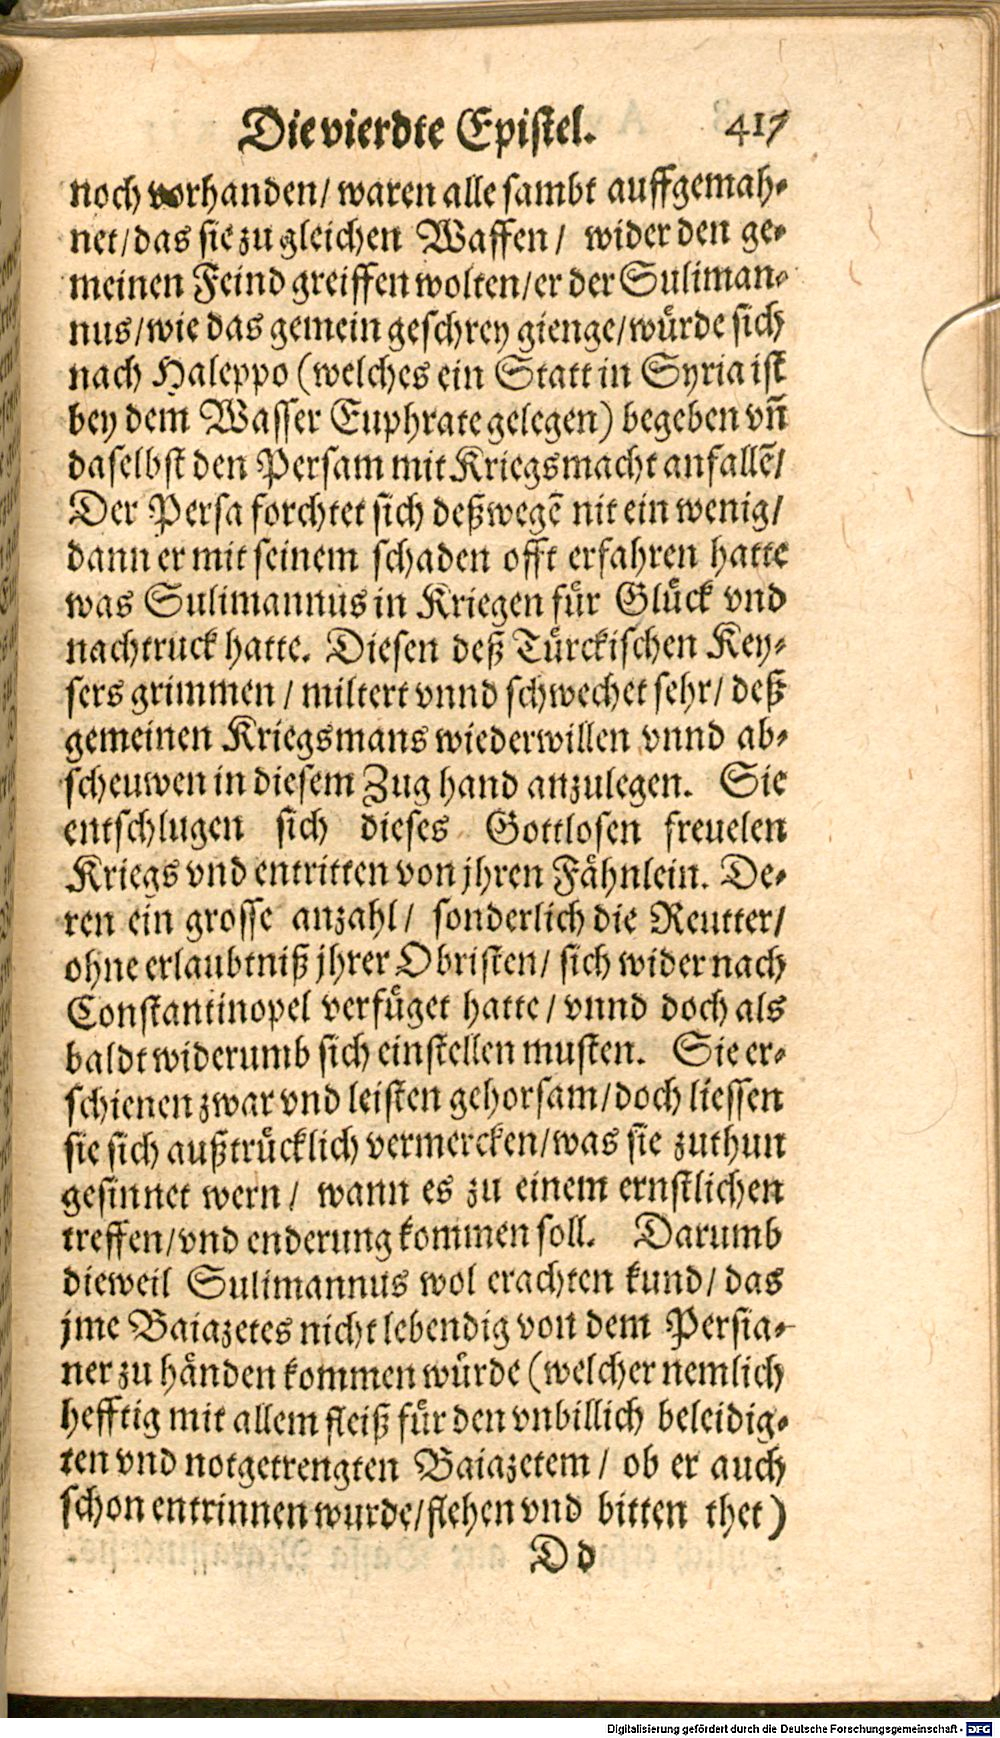 Die vierdte Epistel. 417
noch vorhanden/ waren alle sambt auffgemah-
net/ das sie zu gleichen Waffen/ wider den ge-
meinen Feind greiffen wolten/ er der Suliman-
nus/ wie das gemein geschrey gienge/ würde sich
nach Haleppo (welches ein Statt in Syria ist
bey dem Wasser Euphrate gelegen) begeben vñ
daselbst den Persam mit Kriegsmacht anfallẽ/
Der Persa forchtet sich deßwegẽ nit ein wenig/
dann er mit seinem schaden offt erfahren hatte
was Sulimannus in Kriegen für Glück vnd
nachtruck hatte. Diesen deß Türckischen Key-
sers grimmen/ miltert vnnd schwechet sehr/ deß
gemeinen Kriegsmans wiederwillen vnnd ab-
scheuwen in diesem Zug hand anzulegen. Sie
entschlugen sich dieses Gottlosen freuelen
Kriegs vnd entritten von jhren Fähnlein. De-
ren ein grosse anzahl/ sonderlich die Reutter/
ohne erlaubtniß jhrer Obristen/ sich wider nach
Constantinopel verfüget hatte/ vnnd doch als
baldt widerumb sich einstellen musten. Sie er-
schienen zwar vnd leisten gehorsam/ doch liessen
sie sich außtrücklich vermercken/ was sie zuthun
gesinnet wern/ wann es zu einem ernstlichen
treffen/ vnd enderung kommen soll. Darumb
dieweil Sulimannus wol erachten kund/ das
jme Baiazetes nicht lebendig von dem Persia-
ner zu händen kommen würde (welcher nemlich
hefftig mit allem fleiß für den vnbillich beleidig-
ten vnd notgetrengten Baiazetem/ ob er auch
schon entrinnen wurde/ flehen vnd bitten thet)
Dd
Digitalisierung gefördert durch die Deutsche Forschungsgemeinschaft - DFG